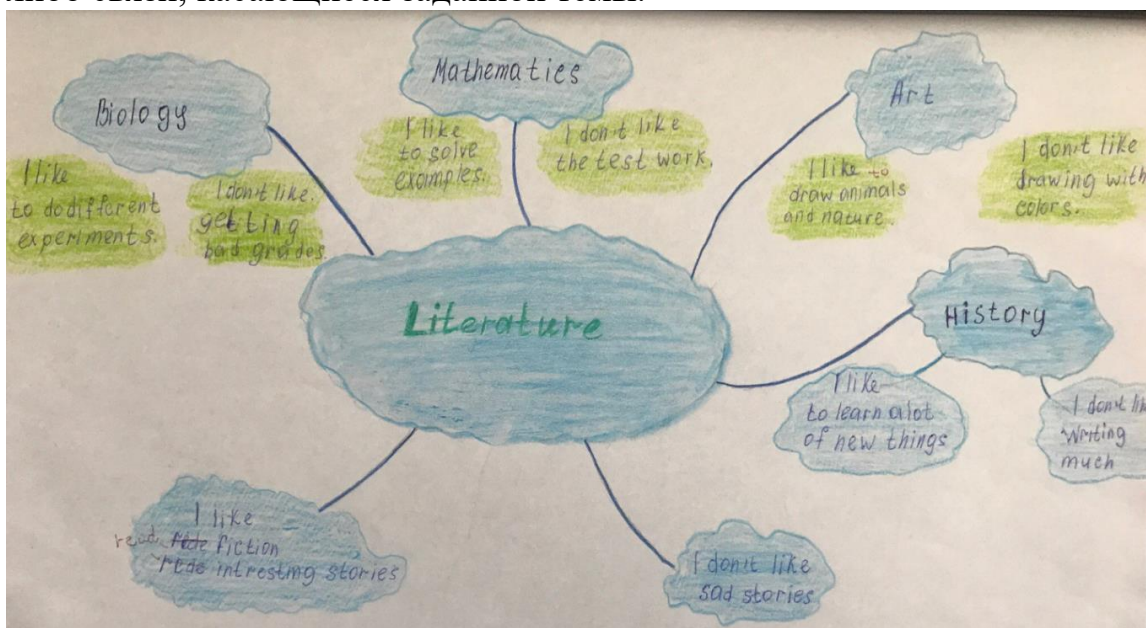 Biology
I like
to do different
experiments.
I don't like
getting
bad grades.
Mathematics
I like
to solve
examples.
I don't like
the test work.
Art
I like to
draw animals
and nature.
I don't like
drawing with
colors.
Literature
History
I like
to learn a lot
of new things
I don't
writing
much
I like
read fiction
intresting stories
I don't like
sad stories